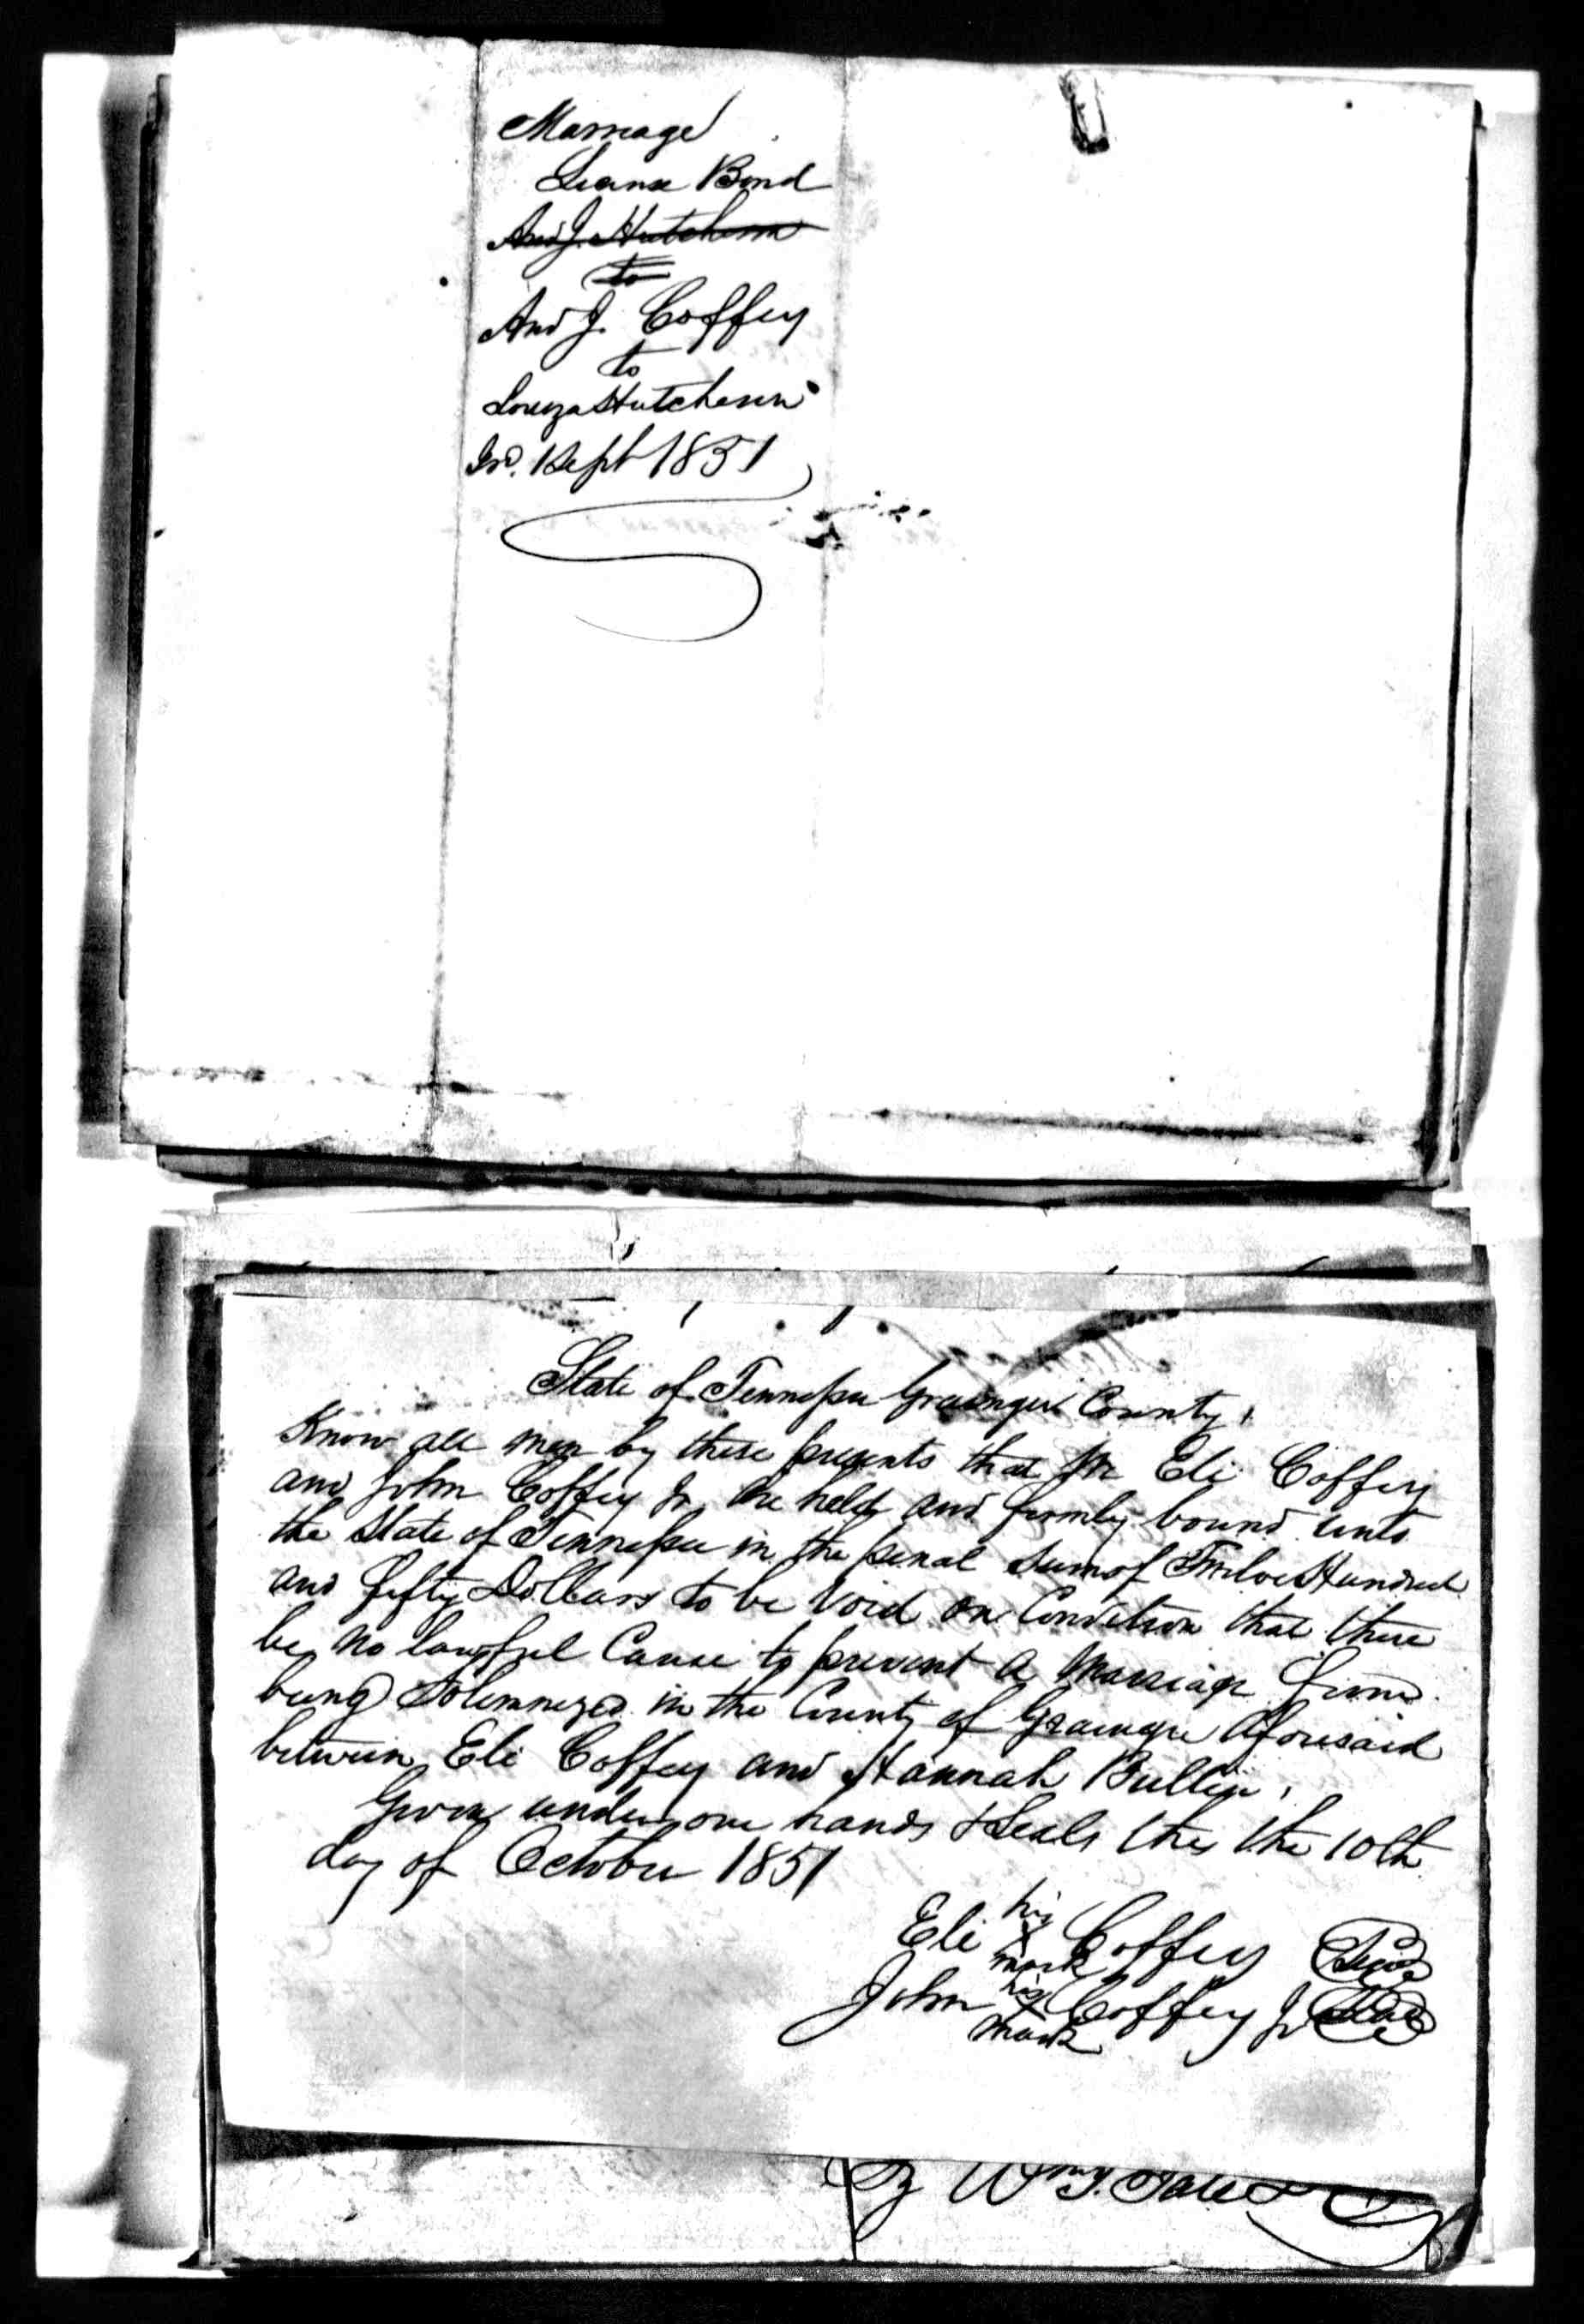 Marriage
License Bond
And J. Hutcheson
to
And J. Coffey
to
Louiza Hutcheson
Isd. 1 Sept 1851
State of Tennessee Grainger County,
Know all men by these presents that We Eli Coffey
and John Coffey Jr are held and firmly bound unto
the State of Tennessee in the penal sum of Twelve Hundred
and fifty Dollars to be void on Condition that there
be no lawful Cause to prevent a Marriage from
being Solemnized in the County of Grainger aforesaid
between Eli Coffey and Hannah Bullin,
Given under our hands & Seals this the 10th
day of October 1851
his
Eli X Coffey Seal
mark
his
John X Coffey Jr Seal
mark
By Wm. T. Tate